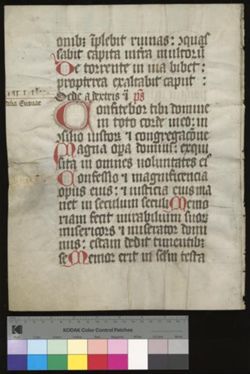 onibꝫ īplebit ruinas: ꝯquas
sabit capita in tīra multorū
De torrente in uia bibet:
propterea exaltabit caput
Sede a dextris
Confitebor tibi domine
in toto corde meo: in
ꝯsilio iustoꝝ ⁊ congregacōne
Magna opa domini: exqui
sita in omnes voluntates eiꝰ
Confessio ⁊ magnificencia
opus eius: ⁊ iusticia eius ma
net in seculum seculi Memo
riam fecit mirabiliuꝫ suoꝝ
misericors ⁊ miserator domi
nus: escam dedit timentibꝫ
se Memor erit in sclm testa
KODAK Color Control Patches